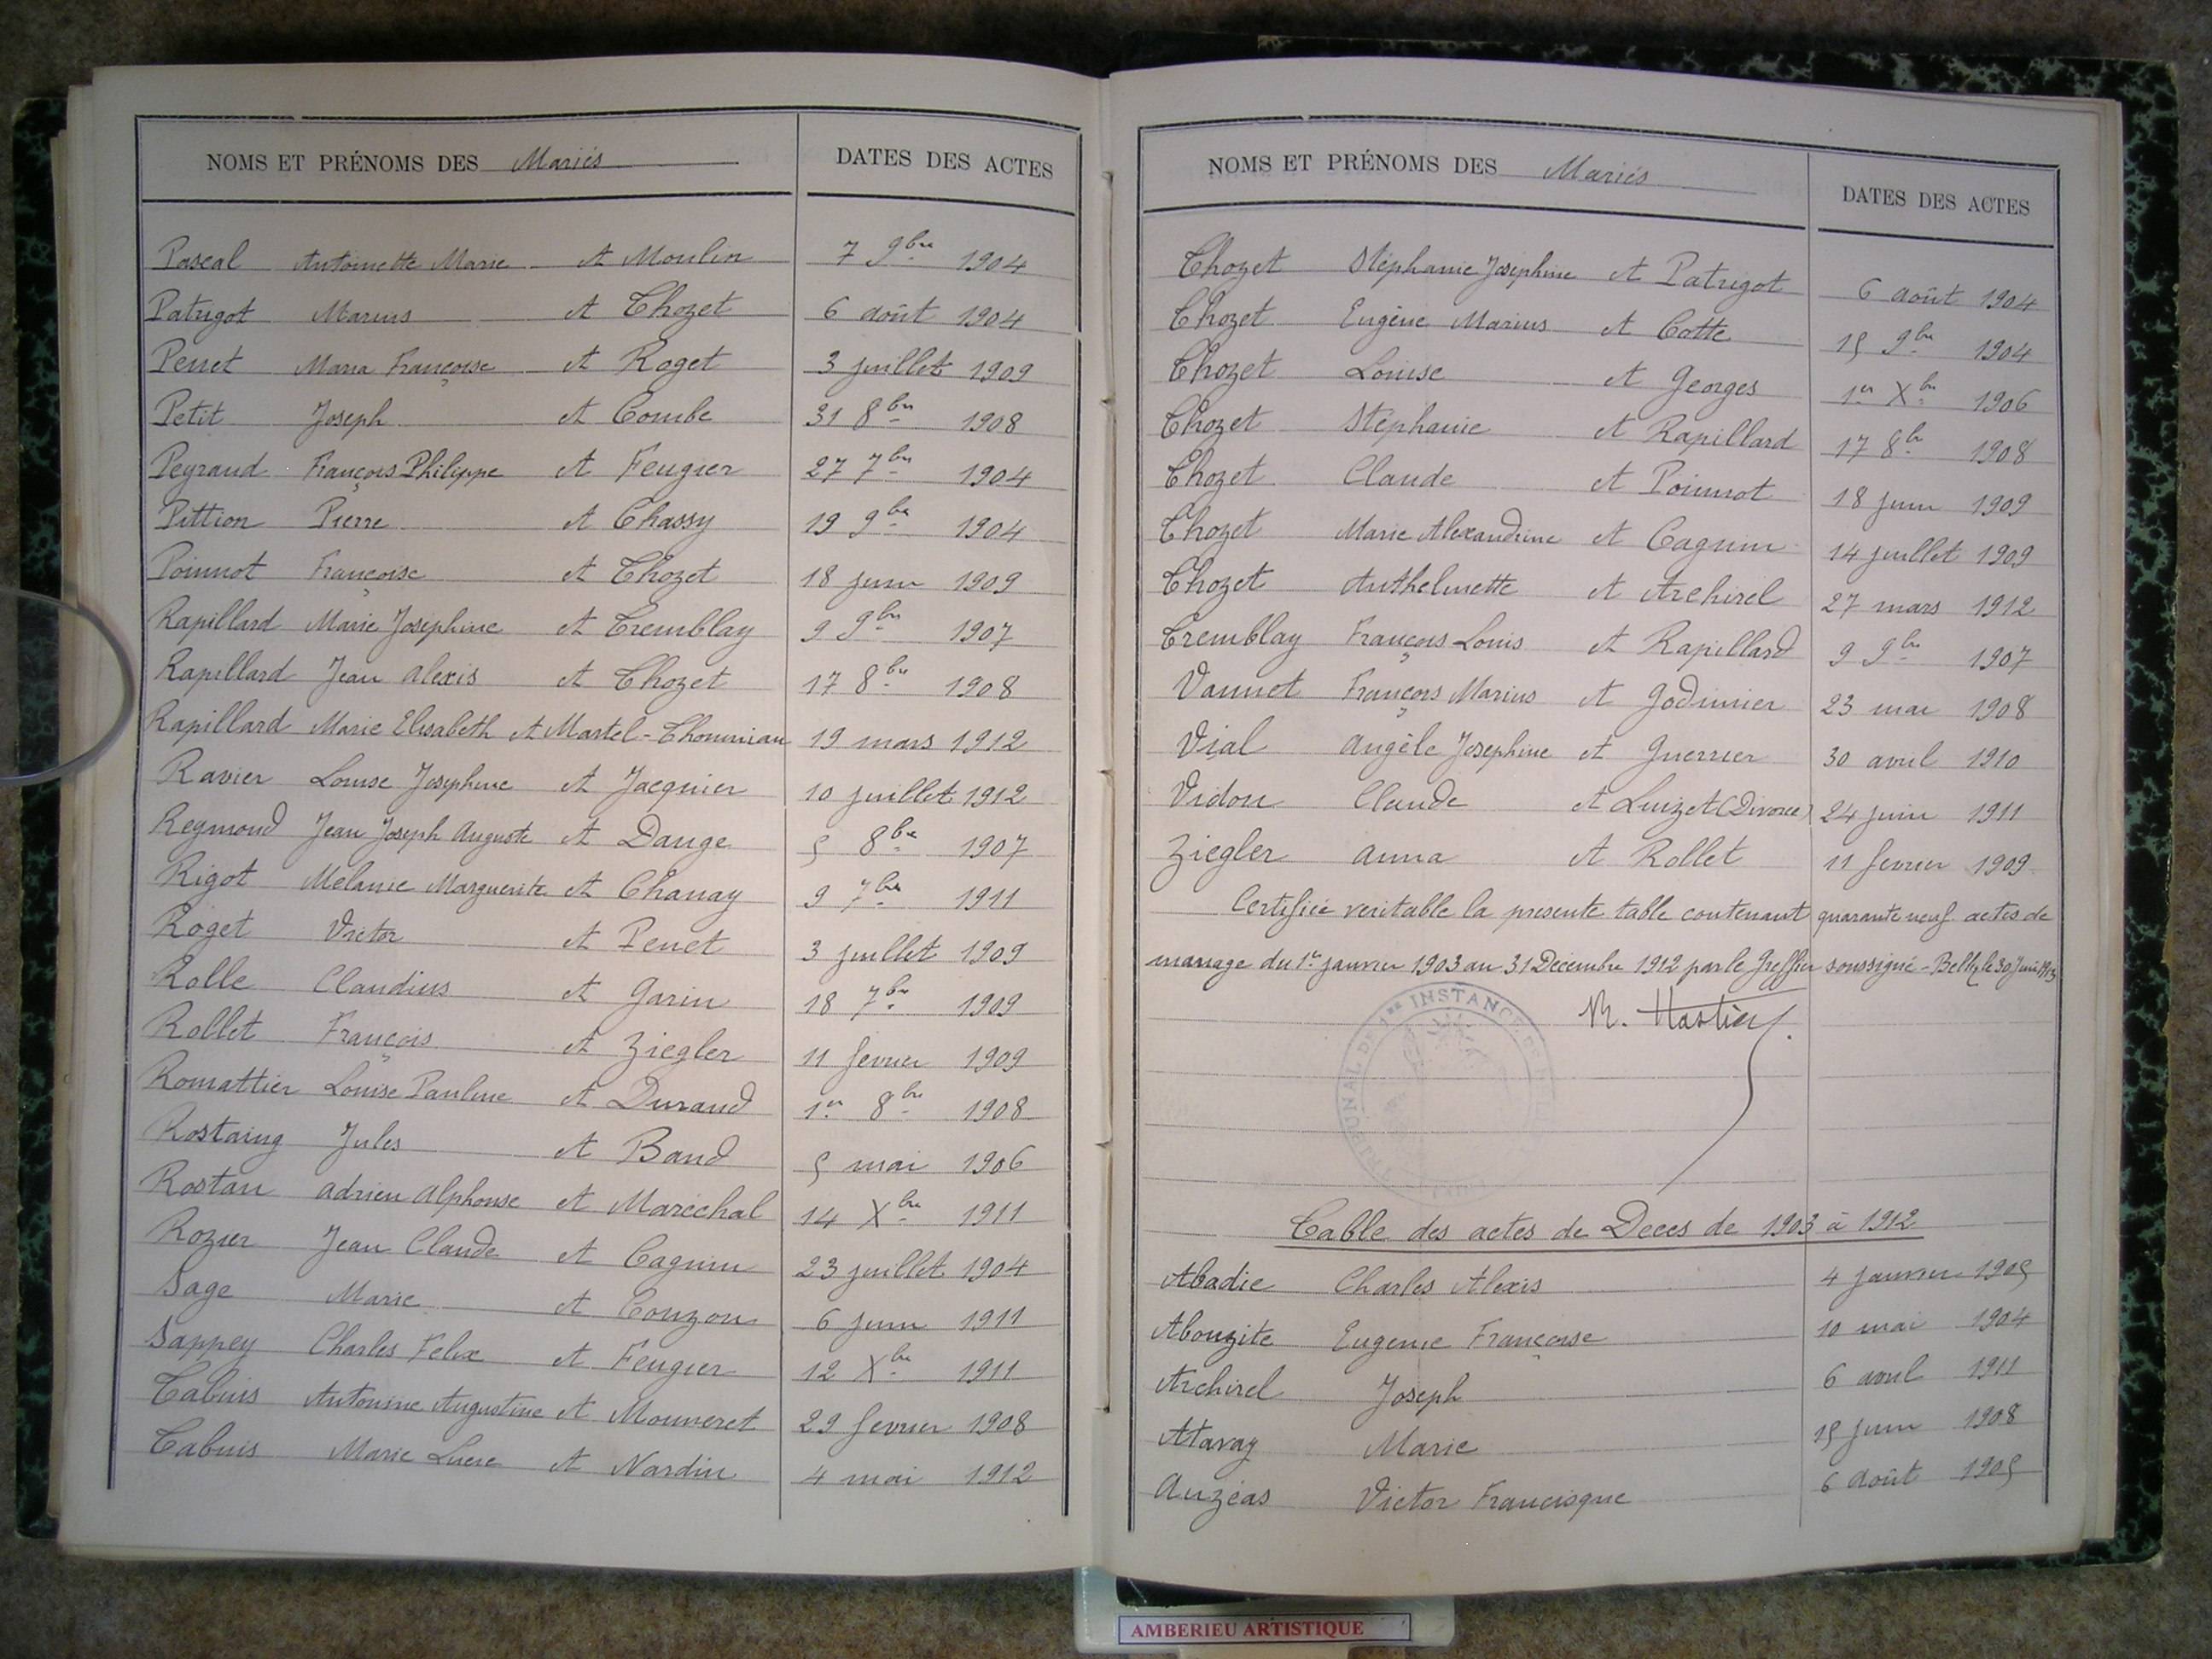 NOMS ET PRÉNOMS DES Mariés DATES DES ACTES
Pascal Antoinette Marie et Moulin 7 9bre 1904
Patrigot Marius et Thozet 6 août 1904
Perret Maria Françoise et Roget 3 juillet 1909
Petit Joseph et Combe 31 8bre 1908
Peyraud François Philippe et Feugier 27 7bre 1904
Pittion Pierre et Chassy 19 9bre 1904
Poinnot Françoise et Thozet 18 juin 1909
Rapillard Marie Joséphine et Tremblay 9 9bre 1907
Rapillard Jean Alexis et Thozet 17 8bre 1908
Rapillard Marie Elisabeth et Martel-Thoumian 19 mars 1912
Ravier Louise Josephine et Jacquier 10 juillet 1912
Reymond Jean Joseph Auguste et Dauge 5 8bre 1907
Rigot Mélanie Marguerite et Chanay 9 7bre 1911
Roget Victor et Perret 3 juillet 1909
Rolle Claudius et Garin 18 7bre 1909
Rollet François et Ziegler 11 fevrier 1909
Romattier Louise Pauline et Durand 1er 8bre 1908
Rostaing Jules et Baud 5 mai 1906
Rostan Adrien Alphonse et Maréchal 14 Xbre 1911
Rozier Jean Claude et Cagnin 23 juillet 1904
Sage Marie et Couzon 6 juin 1911
Sappey Charles Felix et Feugier 12 Xbre 1911
Tabuis Antonine Augustine et Mouneret 29 fevrier 1908
Tabuis Marie Lucie et Nardin 4 mai 1912
NOMS ET PRÉNOMS DES Mariés DATES DES ACTES
Thozet Stéphanie Joséphine et Patrigot 6 août 1904
Thozet Eugène Marius et Cotte 15 9bre 1904
Thozet Louise et Georges 1er Xbre 1906
Thozet Stéphanie et Rapillard 17 8bre 1908
Thozet Claude et Poinnot 18 juin 1909
Thozet Marie Alexandrine et Cagnin 14 juillet 1909
Thozet Anthelmette et Archirel 27 mars 1912
Tremblay François Louis et Rapillard 9 9bre 1907
Vannet François Marius et Godinier 23 mai 1908
Vial Angèle Josephine et Guerrier 30 avril 1910
Vidon Claude et Luizet (Divorce) 24 juin 1911
Ziegler Anna et Rollet 11 fevrier 1909
Certifiée veritable la presente table contenant quarante neuf actes de
mariage du 1er janvier 1903 au 31 Decembre 1912 par le Greffier soussigné - Belley, le 30 Juin 1913
TRIBUNAL DE 1re INSTANCE DE
Table des actes de Deces de 1903 à 1912
Abadie Charles Alexis 4 janvier 1905
Abouzite Eugenie Françoise 10 mai 1904
Archirel Joseph 6 avril 1911
Atavay Marie 15 juin 1908
Auzéas Victor Francisque 6 août 1905
AMBERIEU ARTISTIQUE